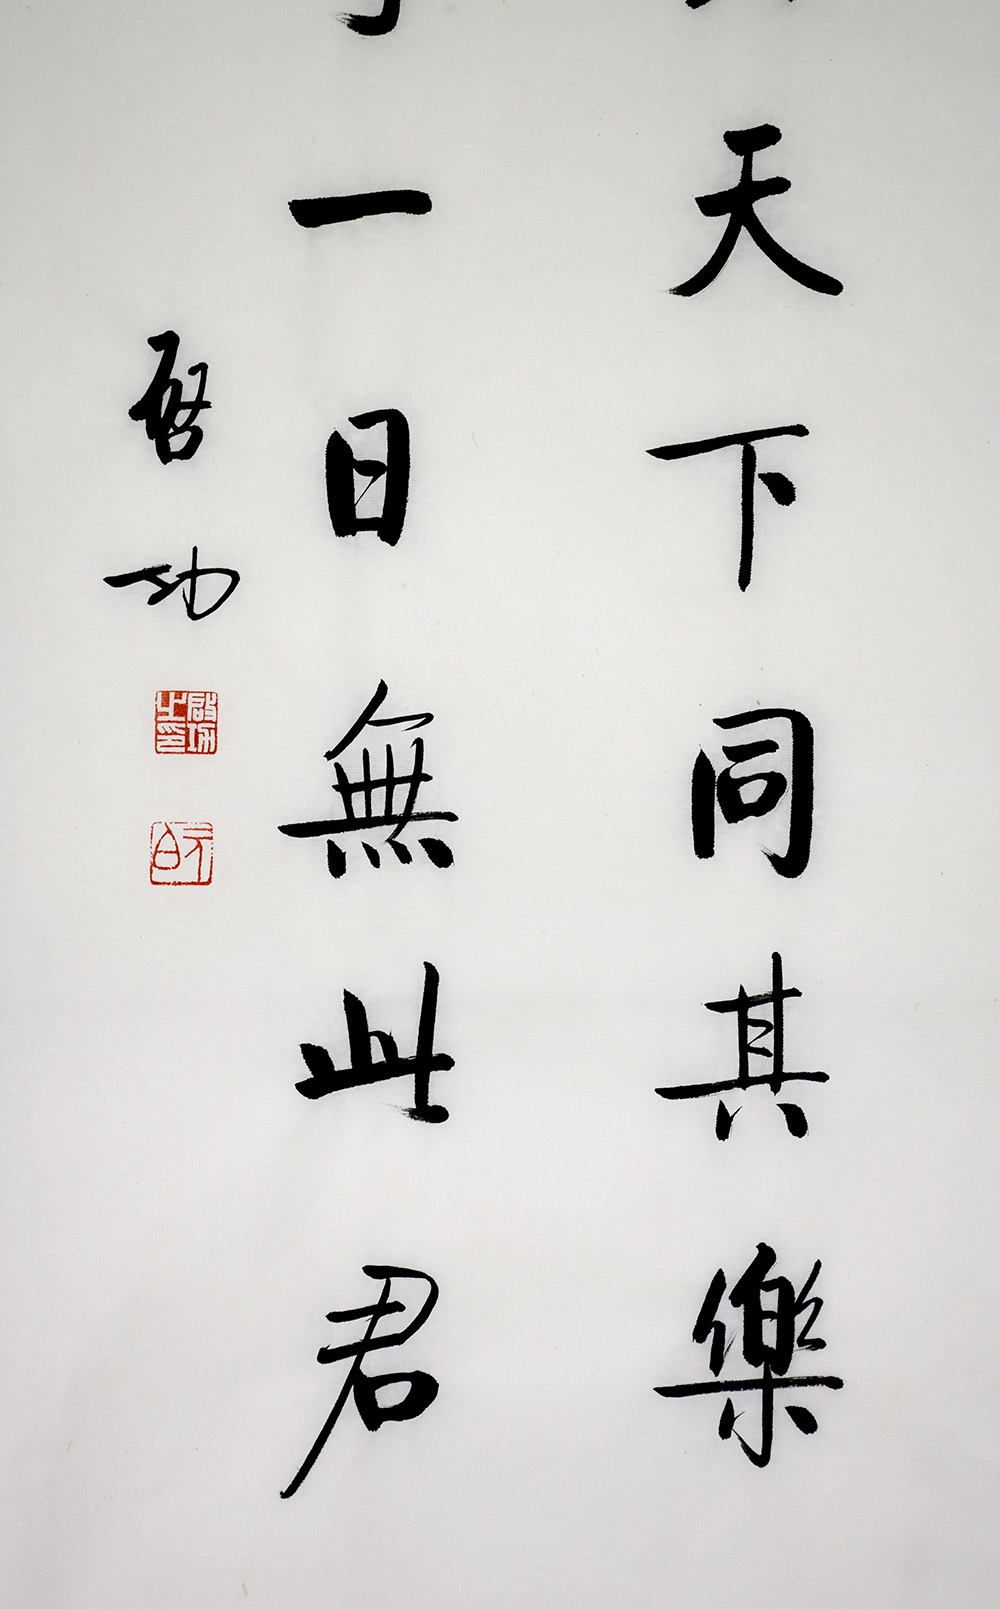 天下同其樂
一日無此君
啓功
啟功之印
元白